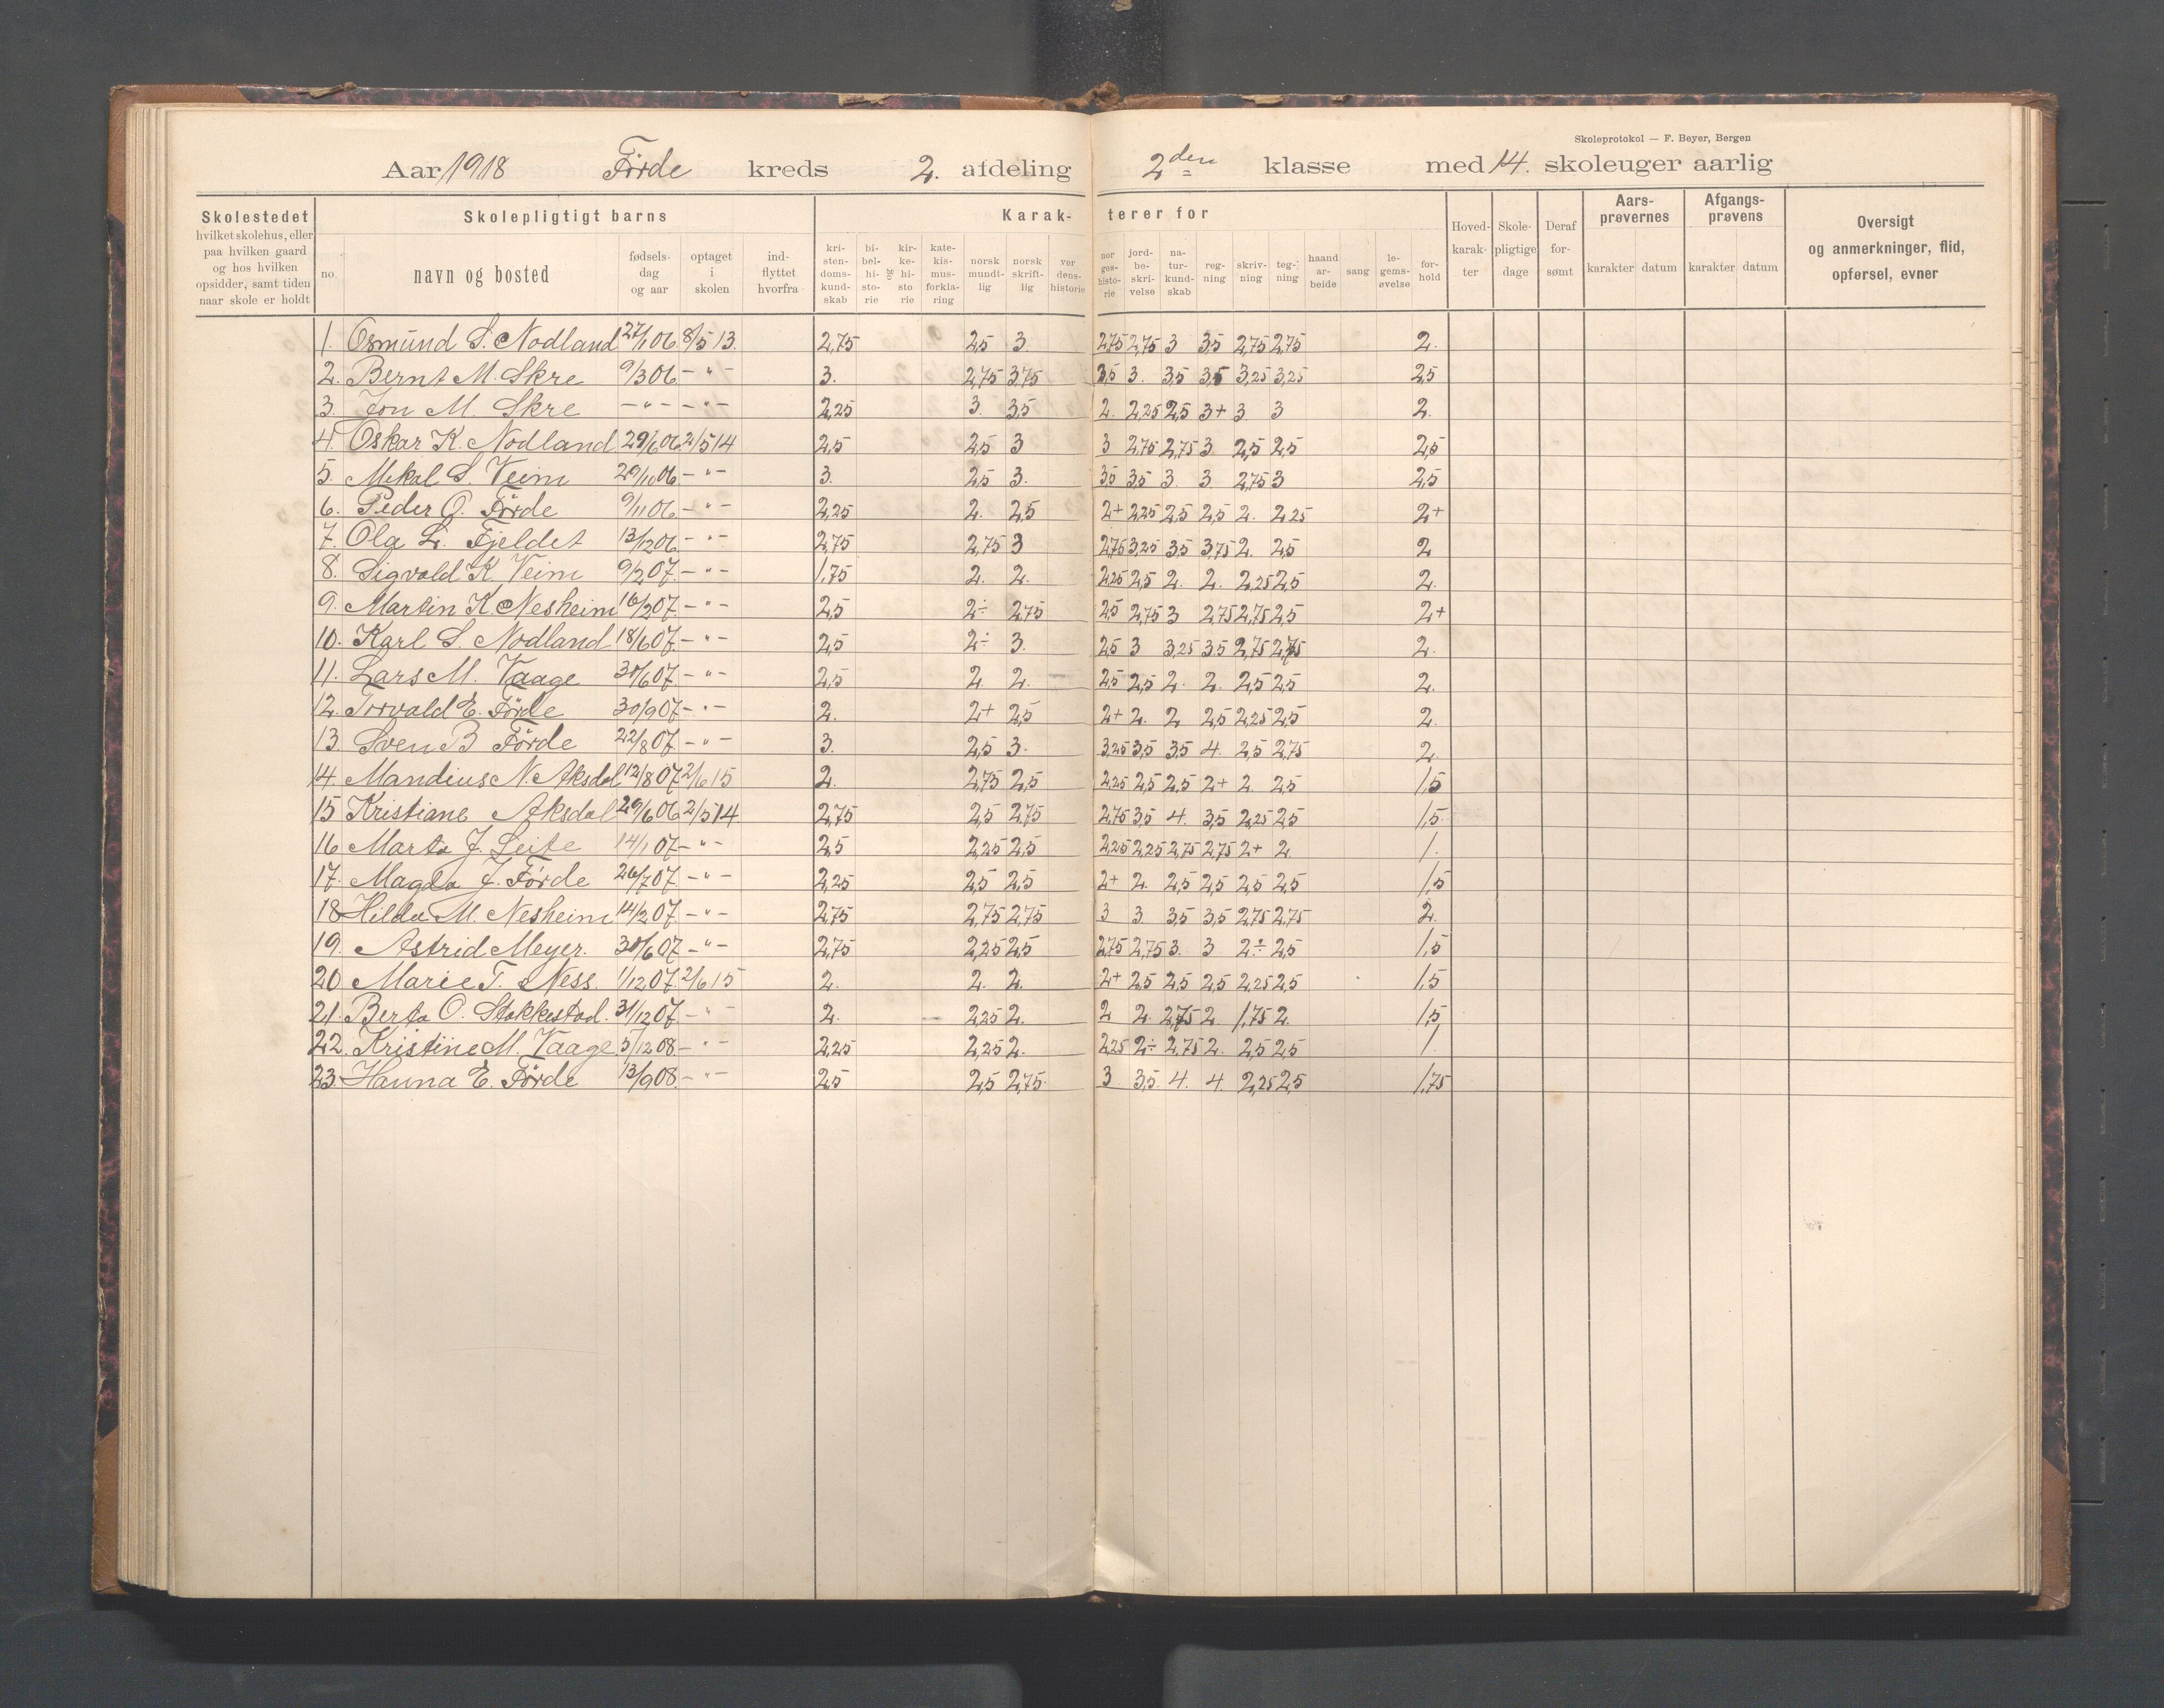 Skoleprotokol — F. Beyer, Bergen
Aar 1918 Förde kreds 2. afdeling 2den klasse med 14. skoleuger aarlig
Skolestedet hvilket skolehus, eller paa hvilken gaard og hos hvilken opsidder, samt tiden naar skole er holdt
Skolepligtigt barns
no. navn og bosted fødsels- dag og aar optaget i skolen ind- flyttet hvorfra
Karak- terer for
kri- sten- doms- kund- skab bi- bel- hi- sto- rie og kir- ke- hi- sto rie kate- kis- mus- forkla- ring norsk mundt- lig norsk skrift- lig ver dens- historie nor ges- histo- rie jord- be- skri- velse na- tur- kund- skab reg- ning skriv- ning teg- ning haand ar- beide sang le- gems- øvelse for- hold
Hoved- karak- ter Skole- pligtige dage Deraf for- sømt Aars- prøvernes karakter datum Afgangs- prøvens karakter datum
Oversigt og anmerkninger, flid, opførsel, evner
1. Osmund S. Nodland 27/1 06. 8/5 13. 2,75 2,5 3. 2,75 2,75 3 3,5 2,75 2,75 2.
2. Bernt M. Skre 9/3 06 - " - 3. 2,75 3,75 3,5 3. 3,5 3,5 3,25 3,25 2,5
3. Jon M. Skre - " - - " - 2,25 3. 3,5 2. 2,25 2,5 3+ 3. 3 2.
4. Oskar K. Nodland 29/6 06. 2/5 14 2,5 2,5 3 3 2,75 2,75 3. 2,5 2,5 2,5
5. Mikal S. Veim 29/10 06 - " - 3. 2,5 3. 3,5 3,5 3. 3 2,75 3 2,5
6. Peder O. Förde 9/11 06. - " - 2,25 2. 2,5 2+ 2,25 2,5 2,5 2. 2,25 2+
7. Ola L. Fjeldet 13/12 06. - " - 2,75 2,75 3 2,75 3,25 3,5 3,75 2. 2,5 2
8. Sigvald K. Veim 9/2 07. - " - 1,75 2. 2. 2,25 2,5 2. 2. 2,25 2,5 2.
9. Martin K. Nesheim 16/2 07. - " - 2,5 2÷ 2,75 2,5 2,75 3 2,75 2,75 2,5 2+
10. Karl S. Nodland 18/6 07. - " - 2,5 2÷ 3. 2,5 3 3,25 3,5 2,75 2,75 2.
11. Lars M. Vaage 30/6 07. - " - 2,5 2. 2. 2,5 2,5 2. 2. 2,5 2,5 2.
12. Torvald E. Förde 30/9 07 - " - 2. 2+ 2,5 2+ 2. 2 2,5 2,25 2,5 2.
13. Sven B Förde 22/8 07. - " - 3. 2,5 3. 3,25 3,5 3,5 4. 2,5 2,75 2.
14. Mandius N. Aksdal 12/8 07. 2/6 15 2. 2,75 2,5 2,25 2,5 2,5 2+ 2. 2,5 1,5
15 Kristiane Aksdal 29/6 06 2/5 14 2,75 2,5 2,75 2,75 3,5 4. 3,5 2,25 2,5 1,5.
16 Marta J. Leite 14/1 07 - " - 2,5 2,25 2,5 2,25 2,25 2,75 2,75 2+ 2. 1.
17. Magda J. Förde 26/7 07. - " - 2,25 2,5 2,5 2+ 2. 2,5 2,5 2,5 2,5 1,5
18 Hilda M. Nesheim 14/2 07. - " - 2,75 2,75 2,75 3 3. 3,5 3,5 2,75 2,75 2.
19. Astrid Meyer. 30/6 07 - " - 2,75 2,25 2,5 2,75 2,75 3. 3 2÷ 2,5 1,5
20 Marie T. Ness. 1/12 07. 2/6 15 2. 2. 2. 2+ 2,5 2,5 2,5 2,25 2,5 1,5
21. Berta O. Stakkestad. 31/12 07. - " - 2. 2,25 2. 2 2. 2,75 2. 1,75 2. 1,5
22. Kristine M. Vaage 5/12 08 - " - 2,25 2,25 2. 2,25 2÷ 2,75 2. 2,5 2,5 1.
23. Hanna E. Förde 13/9 08. - " - 2,5 2,5 2,75 3. 3,5. 4. 4. 2,25 2,5 1,75